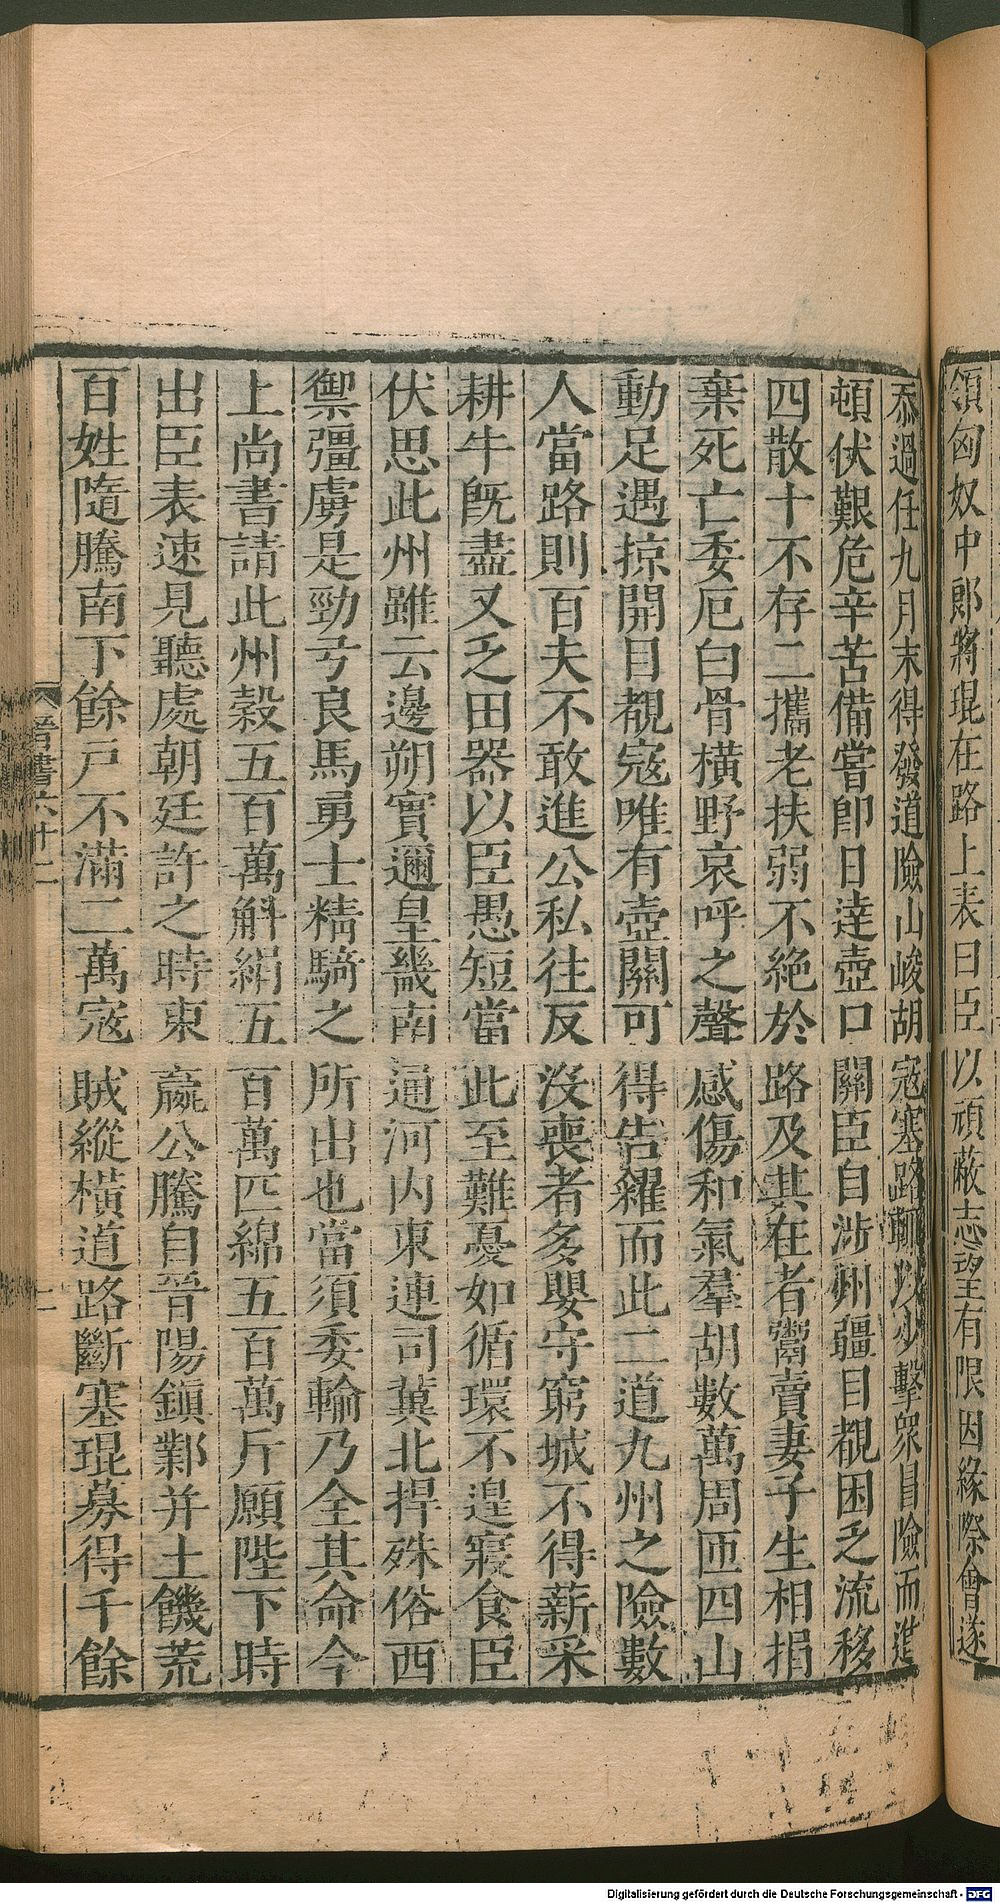 領匈奴中郎將琨在路上表曰臣以頑蔽志望有限因緣際會遂
忝過任九月末得發道險山峻胡寇塞路輒以少擊衆冒險而進
頓伏艱危辛苦備嘗卽日達壺口關臣自涉州疆目覩困乏流移
四散十不存二攜老扶弱不絶於路及其在者鬻賣妻子生相捐
棄死亡委厄白骨橫野哀呼之聲感傷和氣羣胡數萬周匝四山
動足遇掠開目覩寇唯有壺關可得告糴而此二道九州之險數
人當路則百夫不敢進公私往反沒喪者多嬰守窮城不得薪采
耕牛旣盡又乏田器以臣愚短當此至難憂如循環不遑寢食臣
伏思此州雖云邊朔實邇皇畿南通河內東連司冀北捍殊俗西
禦彊虜是勁弓良馬勇士精騎之所出也當須委輸乃全其命今
上尚書請此州穀五百萬斛絹五百萬匹綿五百萬斤願陛下時
出臣表速見聽處朝廷許之時東嬴公騰自晉陽鎮鄴并土饑荒
百姓隨騰南下餘戶不滿二萬寇賊縱橫道路斷塞琨募得千餘
晉書六十二
二
Digitalisierung gefördert durch die Deutsche Forschungsgemeinschaft - DFG